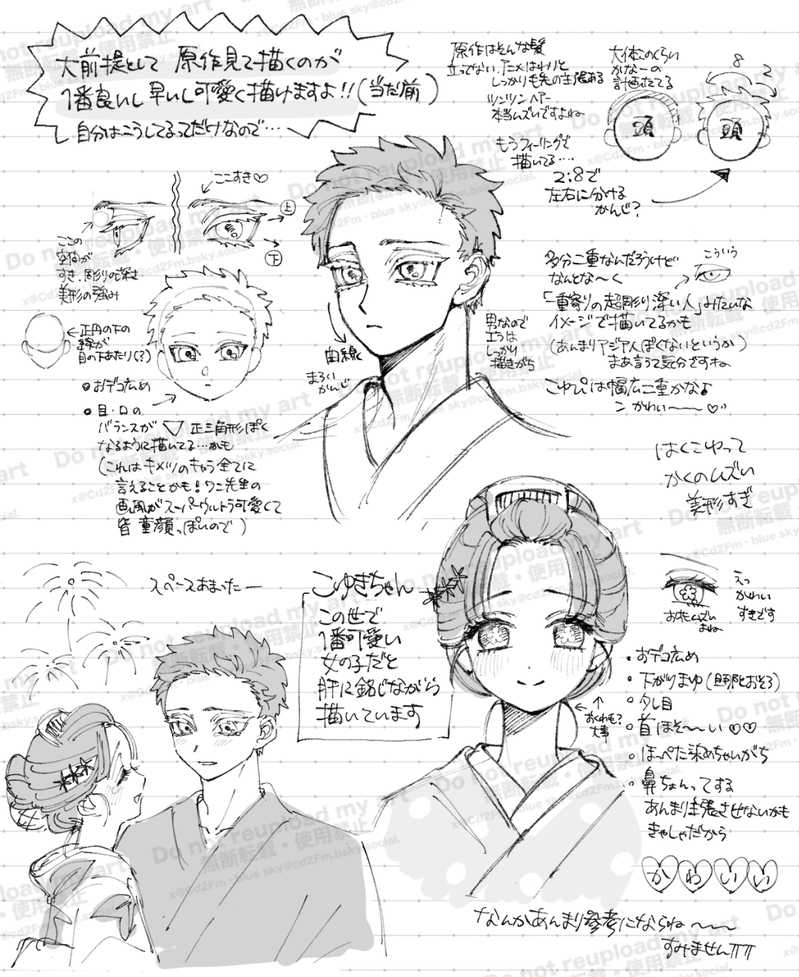 大前提として 原作見て描くのが
1番良いし早いし可愛く描けますよ!!(当たり前)
自分はこうしてるってだけなので…
原作はそんな髪
立ってない、アニメはわりと
しっかり毛先の主張ある
ツンツンヘアー
本当ムズいですよね
もうフィーリングで
描いてる…
2:8で
左右に分ける
かんじ?
大体このくらい
かなーの
計画たてる
8
2
頭
頭
ここすき♡
上
下
ここの
空間が
すき、彫りの深さ
美形の強み
正円の下の
線が
目の下あたり(?)
●おデコ広め
●目・口の
バランスが▽正三角形ぽく
なるように描いてる…かも
(これはキメツのキャラ全てに
言えることかも!ワニ先生の
画風がスーパーウルトラ可愛くて
皆童顔っぽいので)
曲線
まるい
かんじ
男なので
エラは
しっかり
描きがち
多分二重なんだろうけど
なんとな〜く
こういう
「一重寄りの超彫り深い人」みたいな
イメージで描いてるかも
(あんまりアジア人ぽくないというか)
まあ言うて気分ですね
こゆぴは幅広二重かな♪
かわい〜〜♡
はくこゆって
かくのムズい
美形すぎ
スペースあまったー
こゆきちゃん
この世で
1番可愛い
女の子だと
肝に銘じながら
描いています
えっ
かわいい
すきです
お花ムズい
まね
•おデコ広め
•下がりまゆ(旦那とおそろ)
•タレ目
•首ほそ〜〜い♡♡
•ほっぺた染めちゃいがち
•鼻ちょんってする
あんまり主張させないかも
きゃしゃだから
おくれ毛?
大事
かわいい
なんかあんまり参考にならね〜〜
すみませんTT
Do not reupload my art
無断転載・使用禁止
x@Cd2Fm・blue sky@cd2Fm.bsky.social